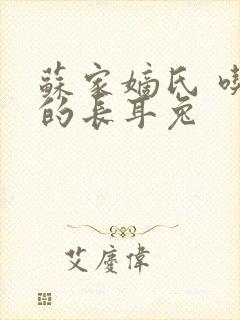 蘇家嫡氏
的長耳兔
艾慶偉